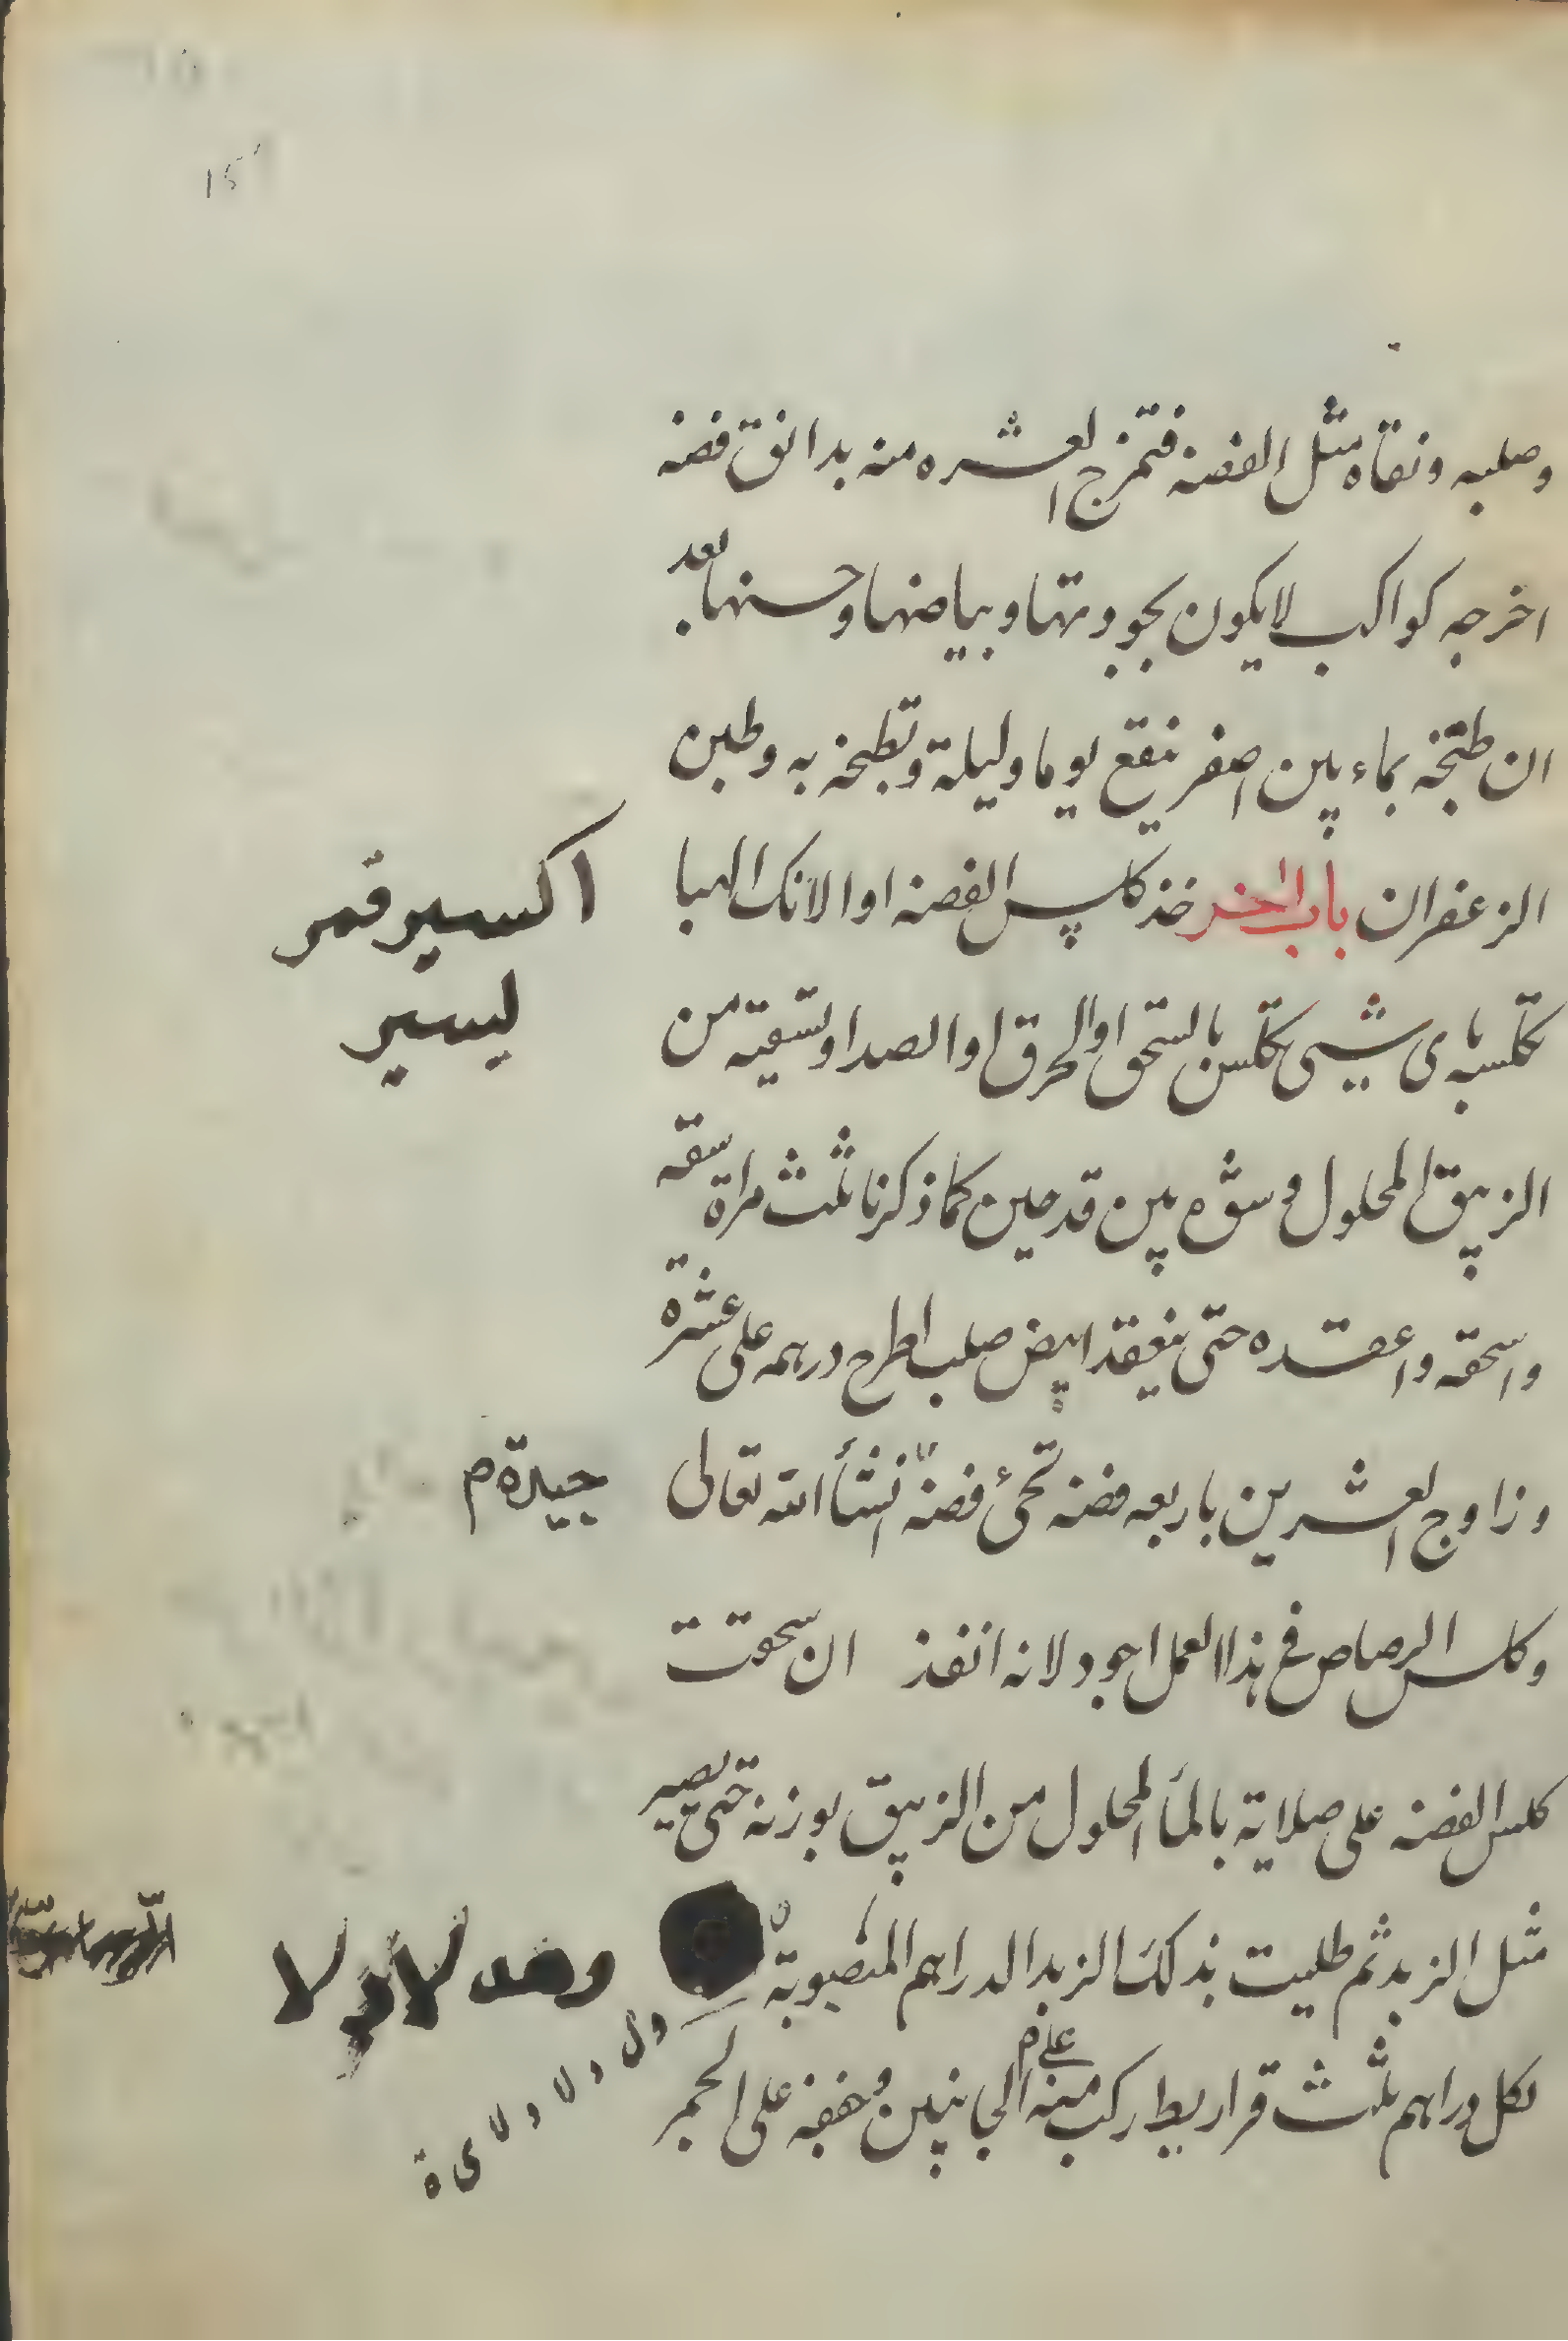 وصلبه ونقاه مثل الفضه فتمزج العشره منه بدانق فضه
اخرجه كواكب لا يكون بجودتها وبياضها وحسنها بعد
ان طبخه بماء تين اصفر ينقع يوما وليلة وتطبخه به وطين
الزعفران باب اخر خذ كلس الفضه او الانك الهبا
اكسير قمر
يسير
تكلسه باى شيى تكلس بالسحق او الحرق او الصدا وتسقيه من
الزيبق المحلول وشوه بين قدحين كما ذكرنا ثلث مراة سقه
واسحقه واعقده حتى ينعقد ابيض صلب اطرح درهمه على عشرة
وزاوج العشرين باربعه فضه تجئ فضه انشأ الله تعالى
جيدة م
وكلس الرصاص فى هذا العمل اجود لانه انفذ ان سحقت
كلس الفضه على صلاية بالمأ المحلول من الزيبق بوزنه حتى يصير
مثل الزبد ثم طليت بذلك الزبد الدراهم المنصوبة
لكل دراهم ثلث قراريط ركب منه على م الجانبين وخففه على الجمر